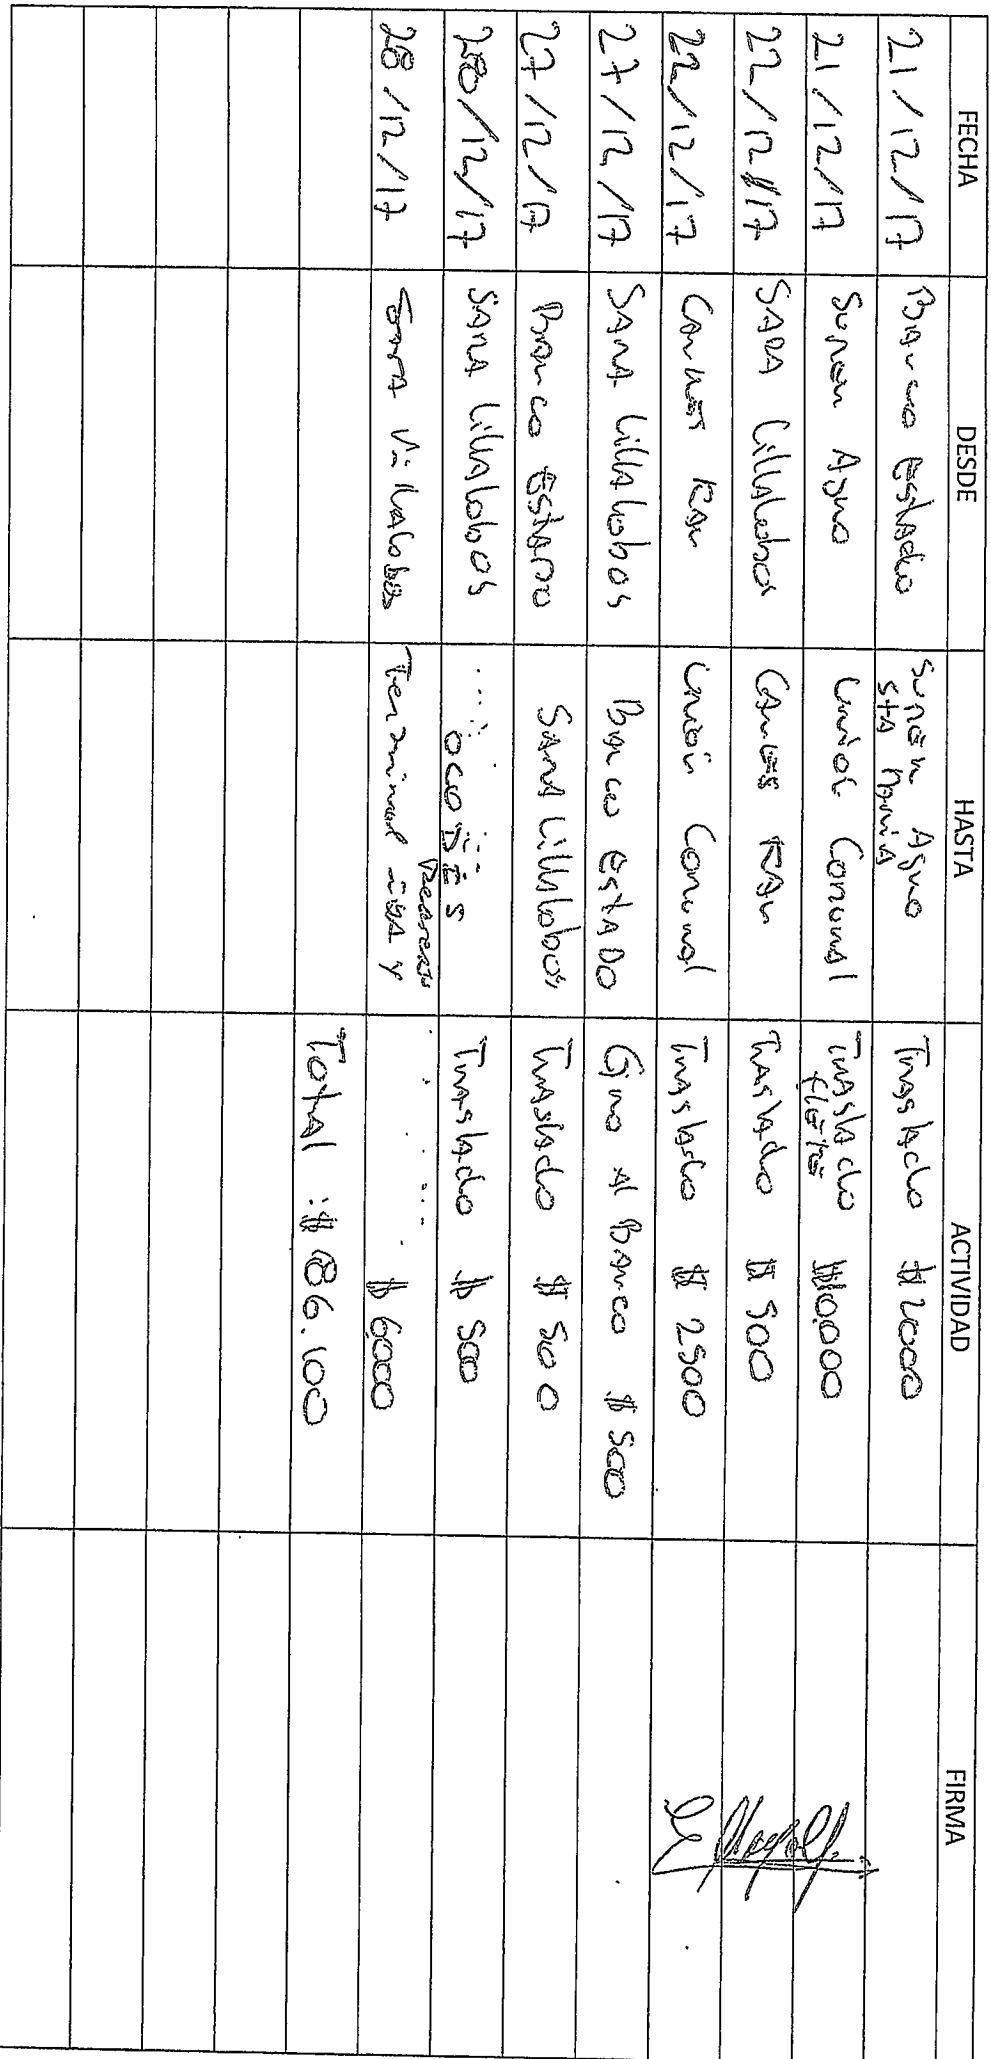 FECHA DESDE HASTA ACTIVIDAD FIRMA
21/12/17 Banco Estado Super Aguo Sta Maria Traslado $2000
21/12/17 Super Aguo Unión Comunal Traslado flete $10.000
22/12/17 SARA Villalobos Traslado $500
22/12/17 Unión Comunal Traslado $2500
27/12/17 SARA Villalobos Banco EstADO Giro Al Banco $500
27/12/17 Banco EstADO SARA Villalobos Traslado $500
28/12/17 SARA Villalobos Traslado $500
28/12/17 Sara Villalobos Terminal $6000
Total : $86.100